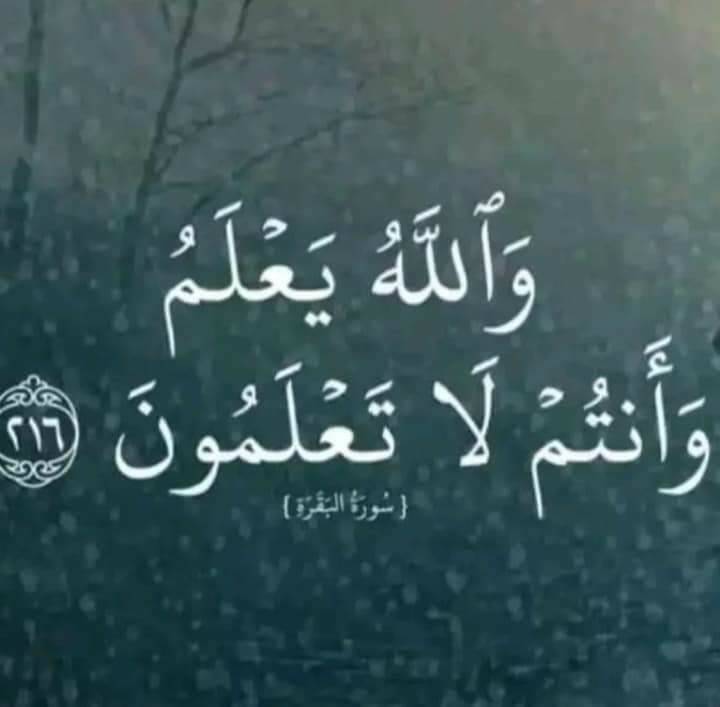 وَٱللَّهُ يَعۡلَمُ
وَأَنتُمۡ لَا تَعۡلَمُونَ ٢١٦
{ سُورَةُ البَقَرَةِ }